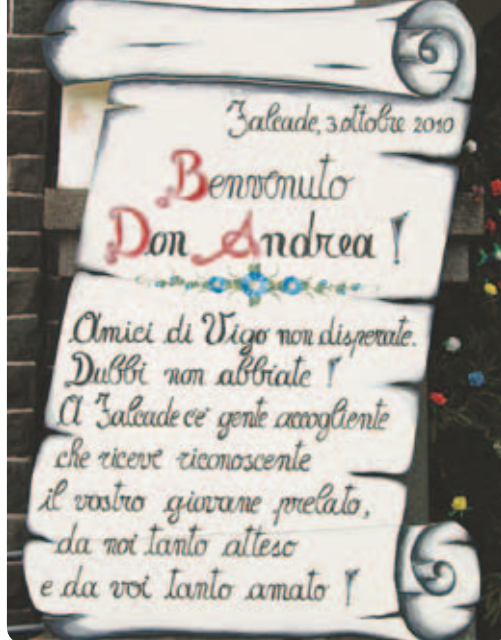 Falcade, 3 ottobre 2010
Benvenuto
Don Andrea !
Amici di Vigo non disperate.
Dubbi non abbiate !
A Falcade c'e' gente accogliente
che riceve riconoscente
il vostro giovane prelato,
da noi tanto atteso
e da voi tanto amato !